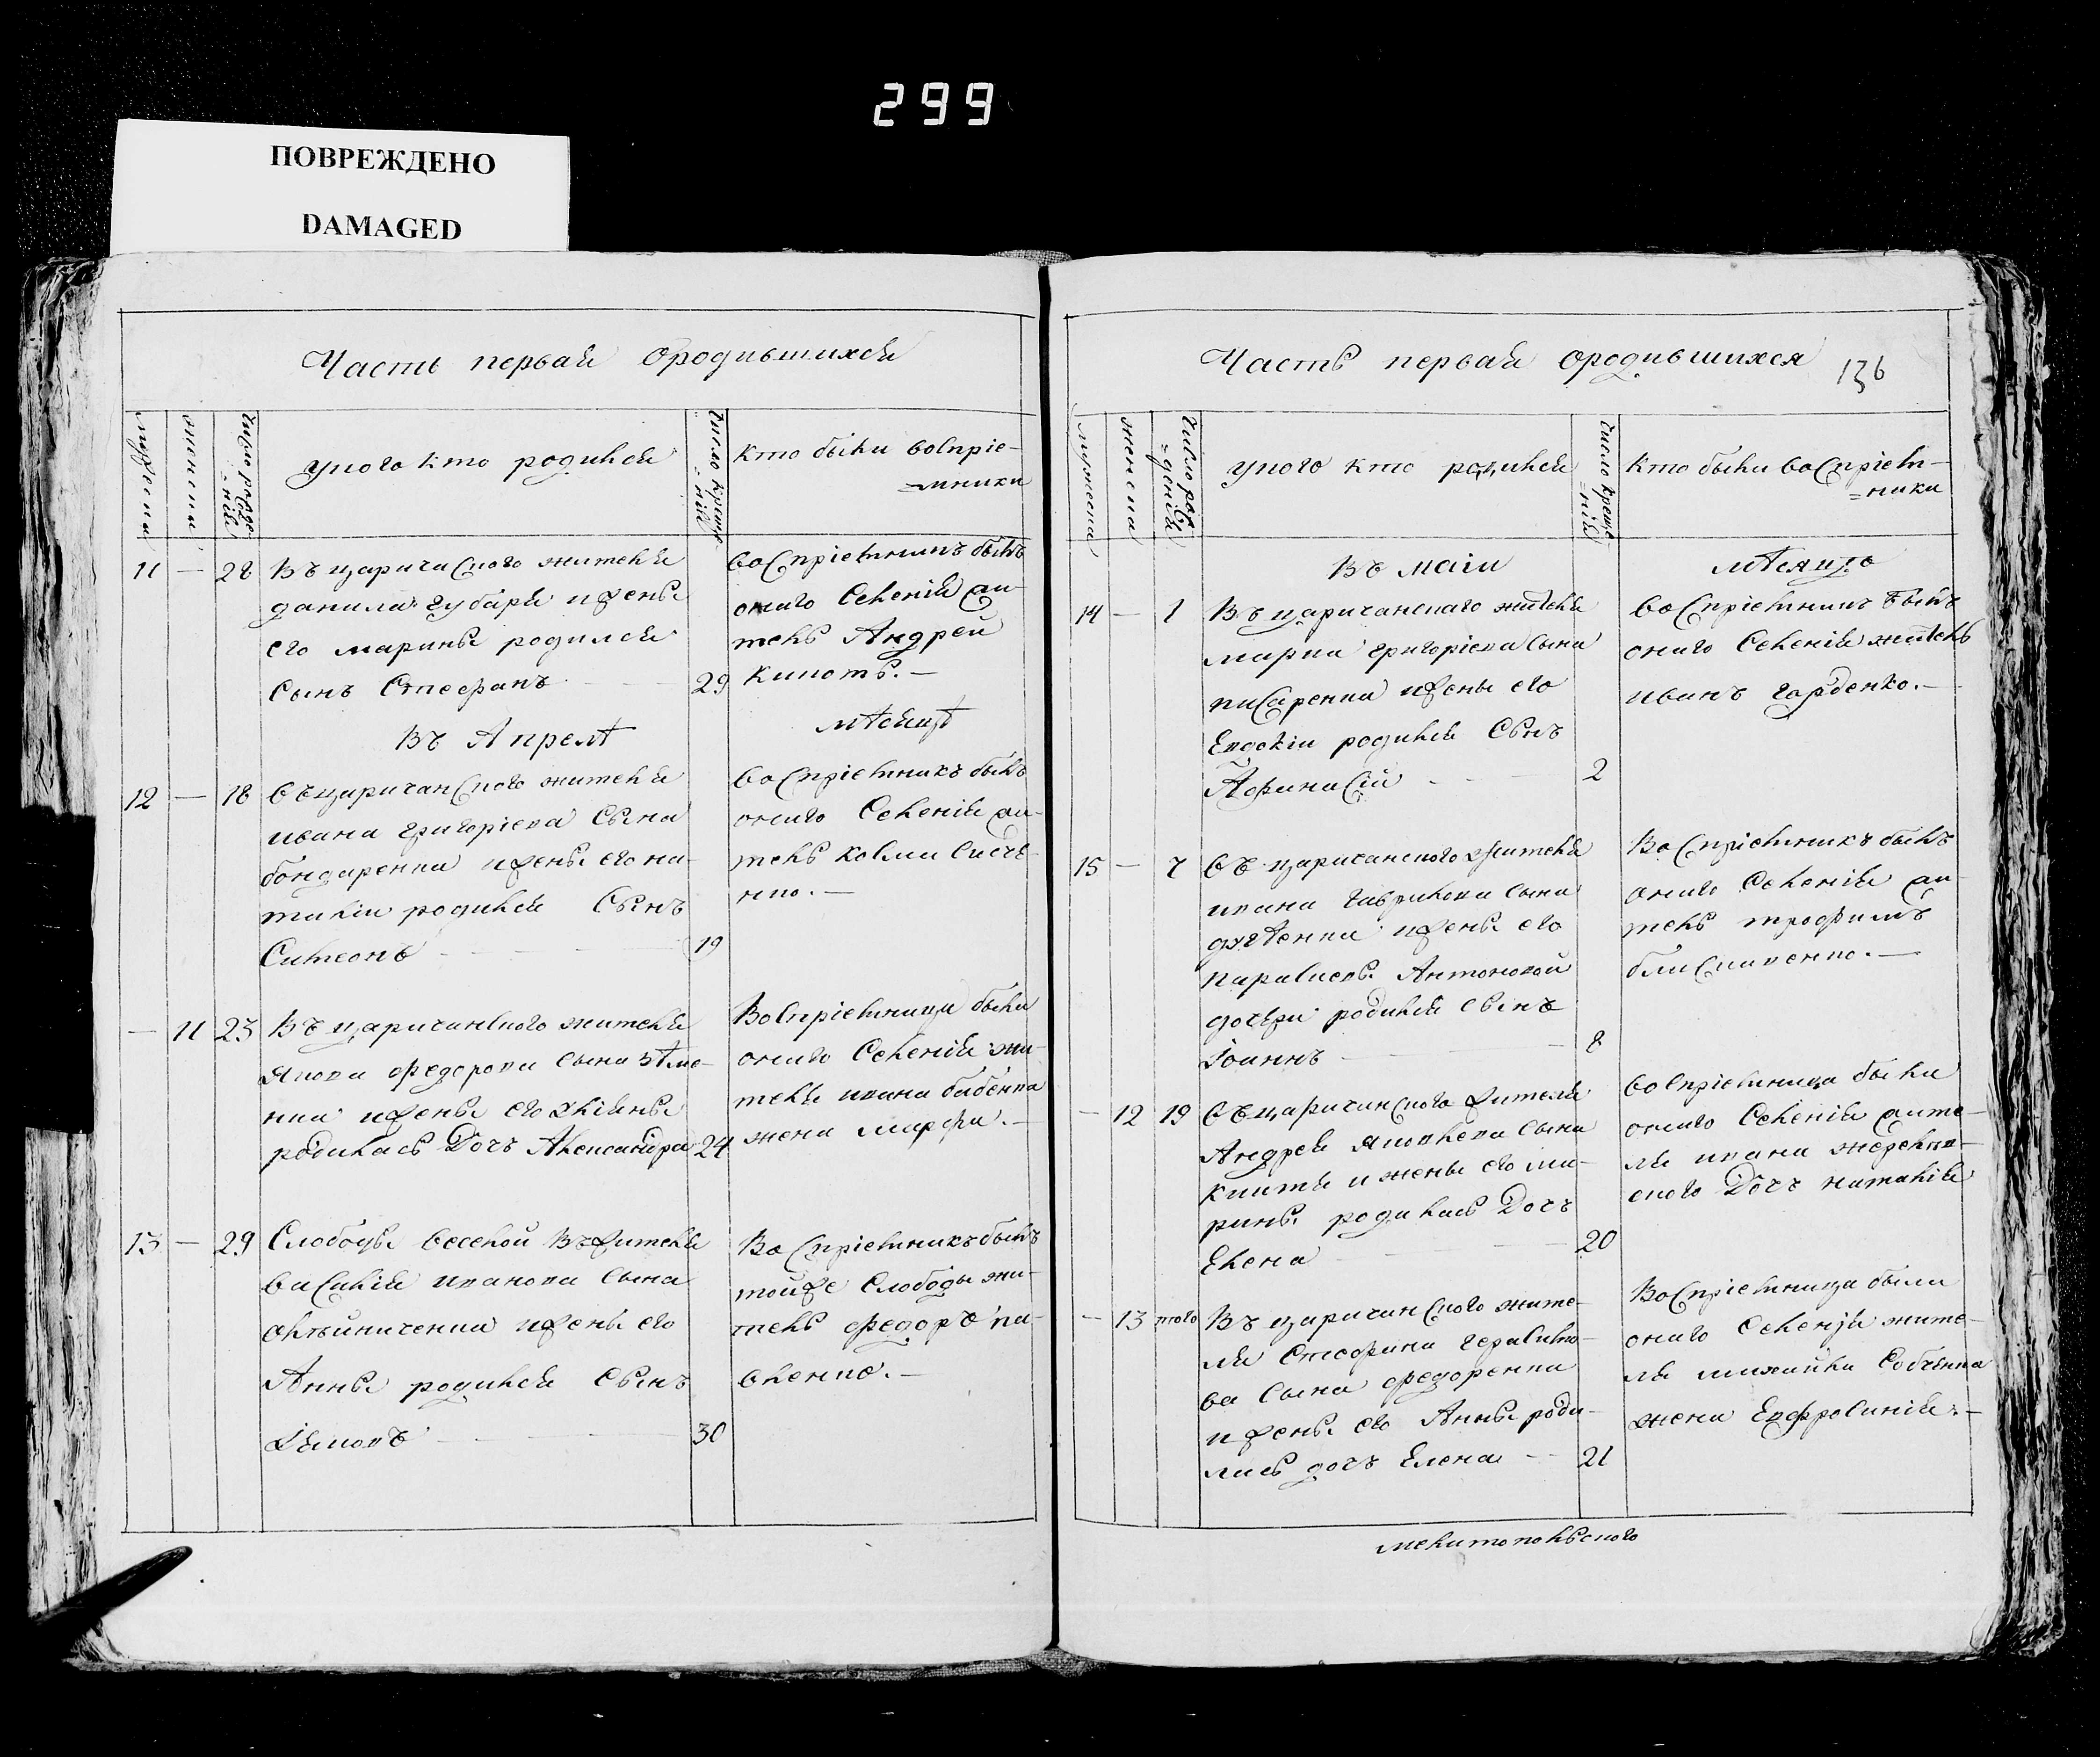 299
ПОВРЕЖДЕНО
DAMAGED
Часть первая Ородившихся
мужеска
женска
число рожде=
=нія
укого кто родился
число креще=
=нія
кто были воспріе=
=мники
11 — 28 Въ царичанского жителя
данила губаря и жены
его марины родился
Сынъ Стефанъ 29
воспріемникъ былъ
онаго Селенія жи-
тель Андрей
В Апрелѣ
мѣсяцѣ
12 — 18 Въ царичанского жителя
ивана григоріева Сына
бондаренка и жены его на-
таліи родился Сынъ
Симеонъ 19
воспріемникъ былъ
онаго Селенія жи-
тель
— 11 23 Въ царичанского жителя
якова федорова Сына
нка и жены его
родилась Дочъ Александра 24
Воспріемница были
онаго Селенія жи-
теля ивана бабенка
жена марфа. —
13 — 29 Слободы веселой Въ жителя
василія иванова Сына
олѣйниченка и жены его
Анны родился Сынъ
Іяковъ 30
Воспріемникъ былъ
тойже Слободы жи-
тель федоръ па-
вленко. —
Часть первая ородившихся
136
мужеска
женска
число рож
=денія
укого кто родился
число креще
=нія
кто были воспріем-
=ники
Въ маіи
мѣсяцѣ
14 — 1 Въ царичанскаго жителя
марка григоріева Сына
писаренка и жены его
Евдокіи родился Сынъ
Афанасій 2
воспріемникъ былъ
онаго Селенія житель
иванъ горденко. —
15 — 7 Въ царичанского жителя
ивана гаврилова Сына
и жены его
параскевы Антоновой
дочери родился Сынъ
Іоаннъ 8
Воспріемникъ былъ
онаго Селенія жи-
тель трофимъ
— 12 19 Въ царичанского жителя
Андрея яковлева Сына
и жены его ма-
рины родилась Дочъ
Елена 20
воспріемница были
онаго Селенія жите-
ля ивана
ского Дочъ наталія
— 13 того Въ царичанского жите-
ля Стефана герасимо-
ва Сына федоренка
и жены его Анны роди-
лась дочъ Елена 21
Воспріемница были
онаго Селенія жите-
ля михайла Собченка
жена Евфросинія. —
мелитопольского